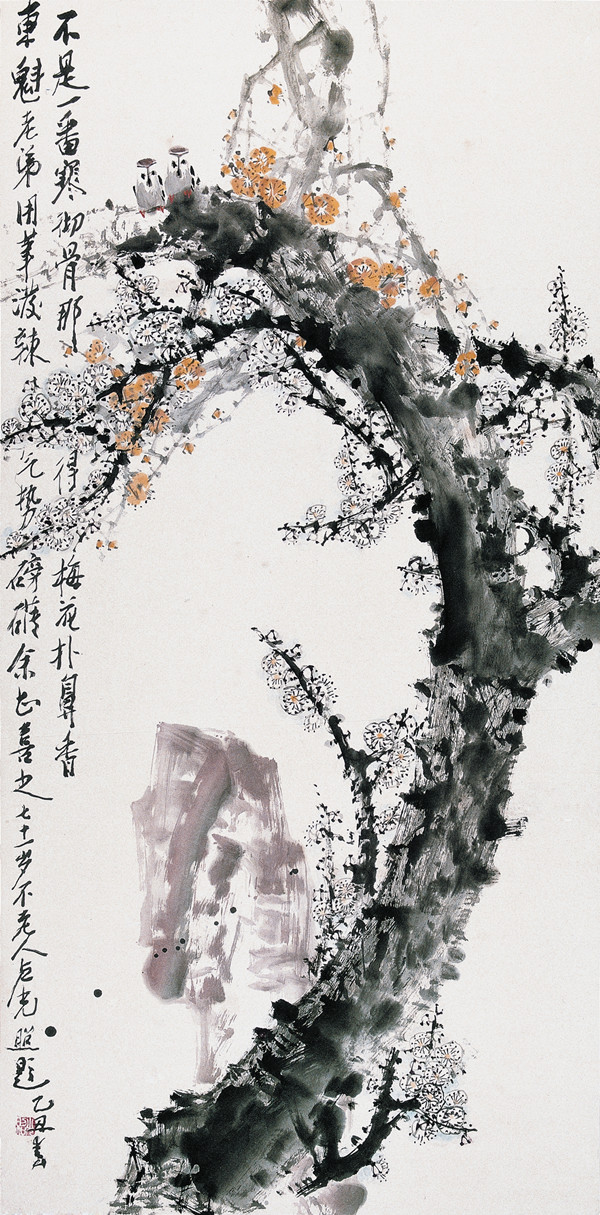 不是一番寒彻骨那得梅花朴鼻香
東魁老弟用筆潑辣气势磅礴余甚喜之七十一岁不老人照题乙丑春